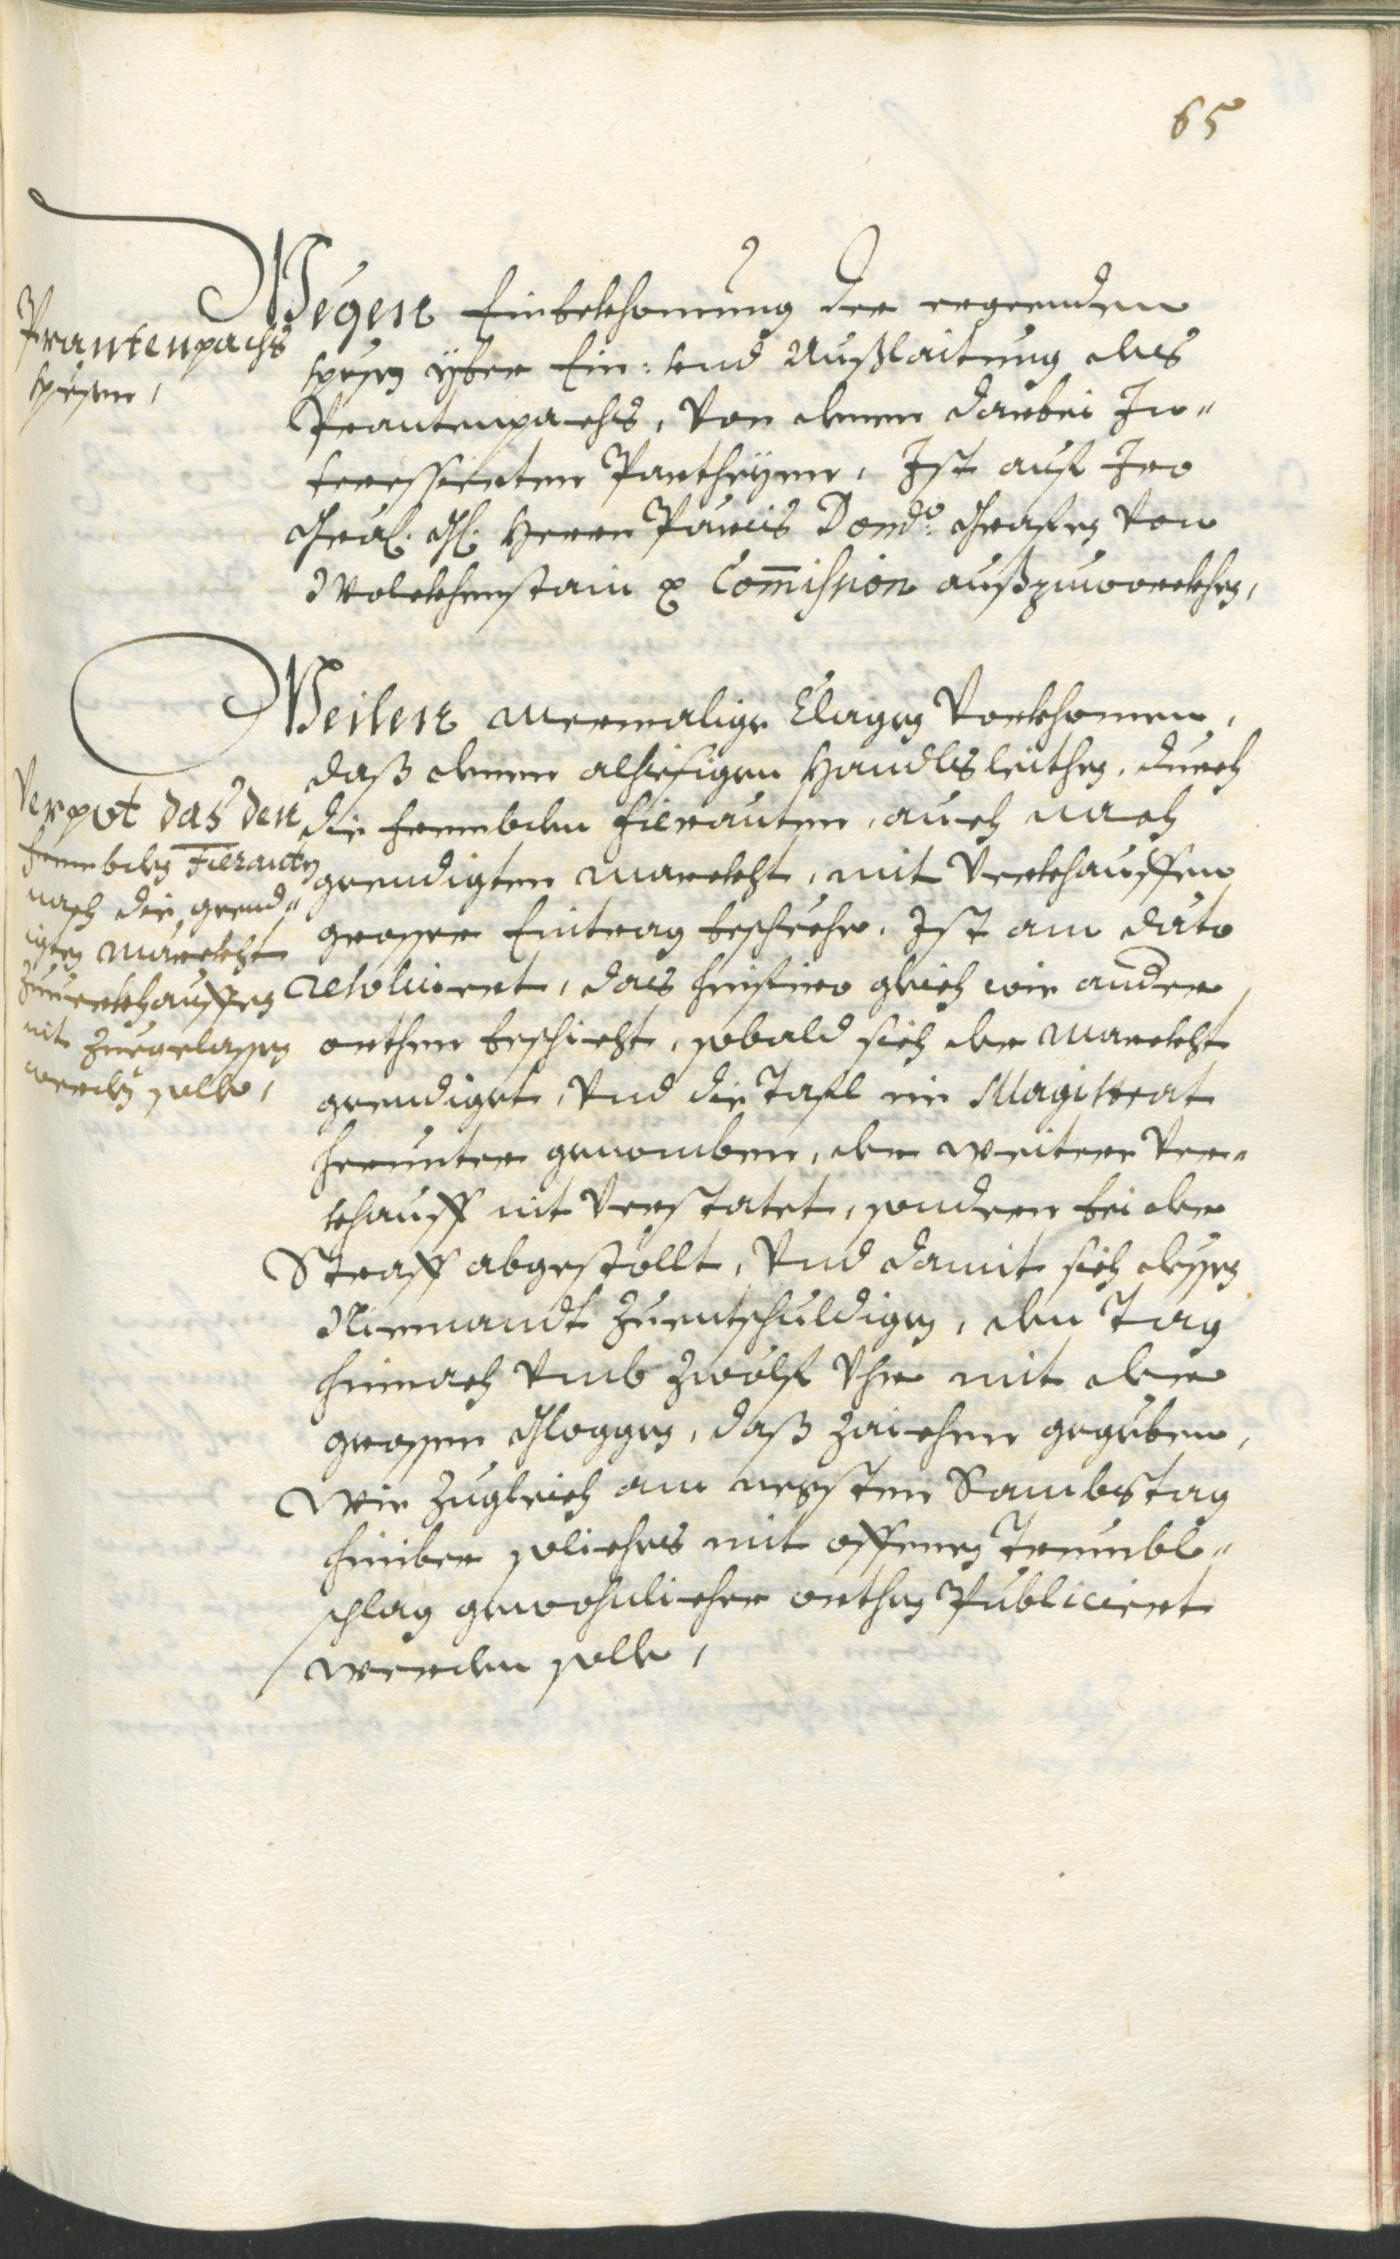 65
Prantenpachs
spesen,
Wegen Einbekhomung der ergeenden
spesen yber Ein: vnd Außlaitung des
Prantenpachs, von denen darbei In-
teressierten Partheyen, Ist auf Iro
Gral. Gl. Herrn Päris Domd: Grafen von
Wolckhenstain p Commission außzuwürckhen,
Verpot das den
frembden Fieranten
nach die geend-
igten Marckht
zuverkhauffen
nit zuegelassen
werden solle,
Weilen mermalige Clagen vorkhomen,
daß denen alhiesigen Handlsleithen, durch
die frembden Fieranten, auch nach
geendigten Marckht, mit verkhauffen
grosser Eintrag beschehe, Ist am dato
resoluiert, das hinfiro gleich wie ander
orthen beschicht, sobald sich der Marckht
geendiget, vnd die Tafl ein Magistrat
herunter genomben, der weitere ver-
khauff nit verstatet, sondern bei der
Straff abgestöllt, vnd damit sich dessen
Niemandt zuentschuldigen, den Tag
hinnach vmb zwölf Vhr mit der
grossen Gloggen, daß zaichen gegeben,
Wie zugleich am negsten Sambstag
hiniber soliches mit offenen Trumbl-
schlag gewohnlicher orthen Publiciert
werden solle,